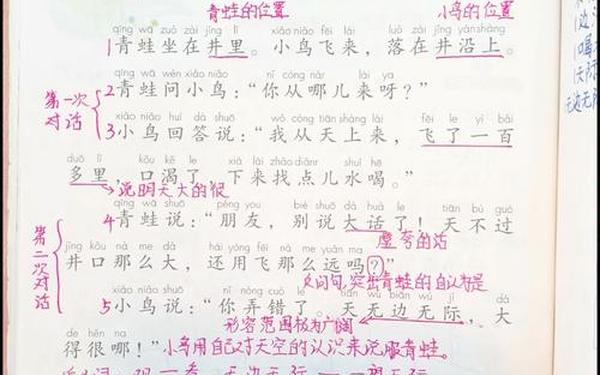 青蛙的位置 小鸟的位置
qīng wā zuò zài jǐng lǐ xiǎo niǎo fēi lái luò zài jǐng yán shàng
1青蛙坐在井里。小鸟飞来，落在井沿上。
qīng wā wèn xiǎo niǎo nǐ cóng nǎr lái ya
2青蛙问小鸟：“你从哪儿来呀？”
第一次对话
xiǎo niǎo huí dá shuō wǒ cóng tiān shàng lái fēi le yì bǎi
3小鸟回答说：“我从天上来，飞了一百
duō lǐ kǒu kě le xià lái zhǎo diǎnr shuǐ hē
多里，口渴了，下来找点儿水喝。”
说明天大的很
qīng wā shuō péng you bié shuō dà huà le tiān bú guò
4青蛙说：“朋友，别说大话了！天不过
虚夸的话
第二次对话
jǐng kǒu nà me dà hái yòng fēi nà me yuǎn ma
井口那么大，还用飞那么远吗？”
反问句，突出青蛙的自以为是
xiǎo niǎo shuō nǐ nòng cuò le tiān wú biān wú jì dà
5小鸟说：“你弄错了。天无边无际，大
形容范围极为广阔
de hěn na
得很哪！”小鸟用自己对天空的认识来说服青蛙。
无边无际